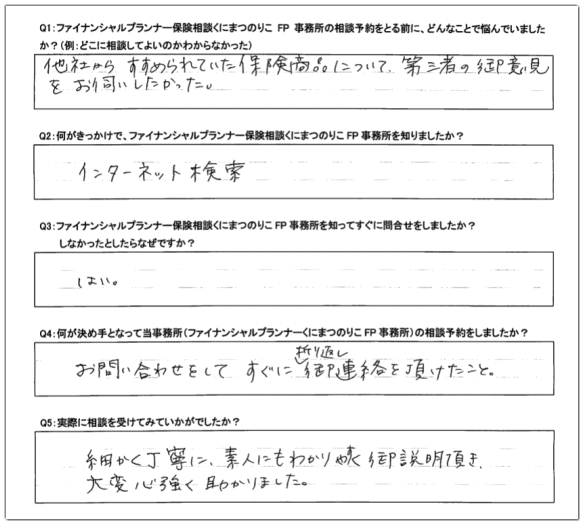 Q1:ファイナンシャルプランナー保険相談くにまつのりこ FP 事務所の相談予約をとる前に、どんなことで悩んでいました
か?(例:どこに相談してよいのかわからなかった)
他社から すすめられていた保険商品について、第三者の御意見
を お伺いしたかった。
Q2:何がきっかけで、ファイナンシャルプランナー保険相談くにまつのりこ FP 事務所を知りましたか?
インターネット検索
Q3:ファイナンシャルプランナー保険相談くにまつのりこ FP 事務所を知ってすぐに問合せをしましたか?
しなかったとしたらなぜですか?
はい。
Q4:何が決め手となって当事務所(ファイナンシャルプランナーくにまつのりこ FP 事務所)の相談予約をしましたか?
折り返し
お問い合わせをして すぐに 御連絡を頂けたこと。
Q5:実際に相談を受けてみていかがでしたか?
細かく丁寧に、素人にもわかり易く御説明頂き、
大変心強く助かりました。